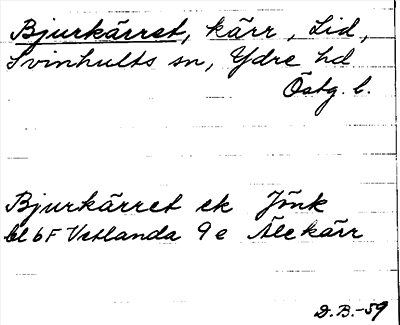 Bjurkärret, kärr, Lid,
Svinhults sn, Ydre hd
Östg. l.
Bjurkärret ek Jönk
bl 6F Vetlanda 9e Älekärr
D.B.-59